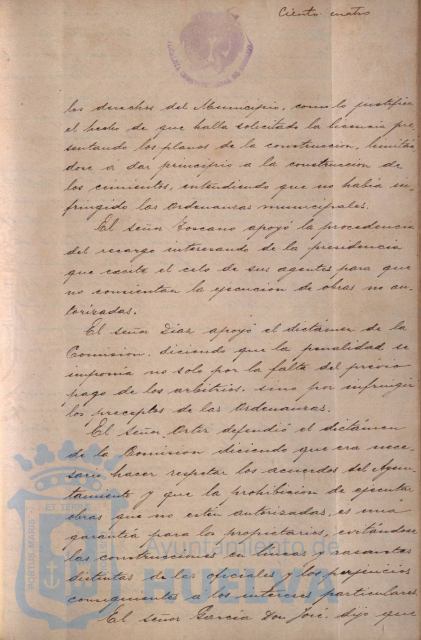 Ciento cuatro
los derechos del Municipio, como lo justifica
el hecho de que había solicitado la licencia pre-
sentando los planos de la construccion, limitán-
dose á dar principio a la construccion de
los cimientos, entendiendo que no habia in-
fringido las Ordenanzas municipales.
El señor Toscano apoyó la procedencia
del recargo interesando de la presidencia
que excite el celo de sus agentes para que
no consientan la ejecucion de obras no au-
torizadas.
El señor Diaz apoyó el dictámen de la
Comision, diciendo que la penalidad se
imponia no solo por la falta del previo
pago de los arbitrios, sino por infringir
los preceptos de las Ordenanzas.
El señor Ortiz defendió el dictámen
de la Comision diciendo que era nece-
sario hacer respetar los acuerdos del Ayun-
tamiento y que la prohibicion de ejecutar
obras que no estén autorizadas, es una
garantía para los propietarios, evitándose
las construcciones en lineas y rasantes
distintas de las oficiales y los perjuicios
consiguientes a los intereses particulares.
El señor Garcia Don José, dijo que
Ayuntamiento de
HUELVA